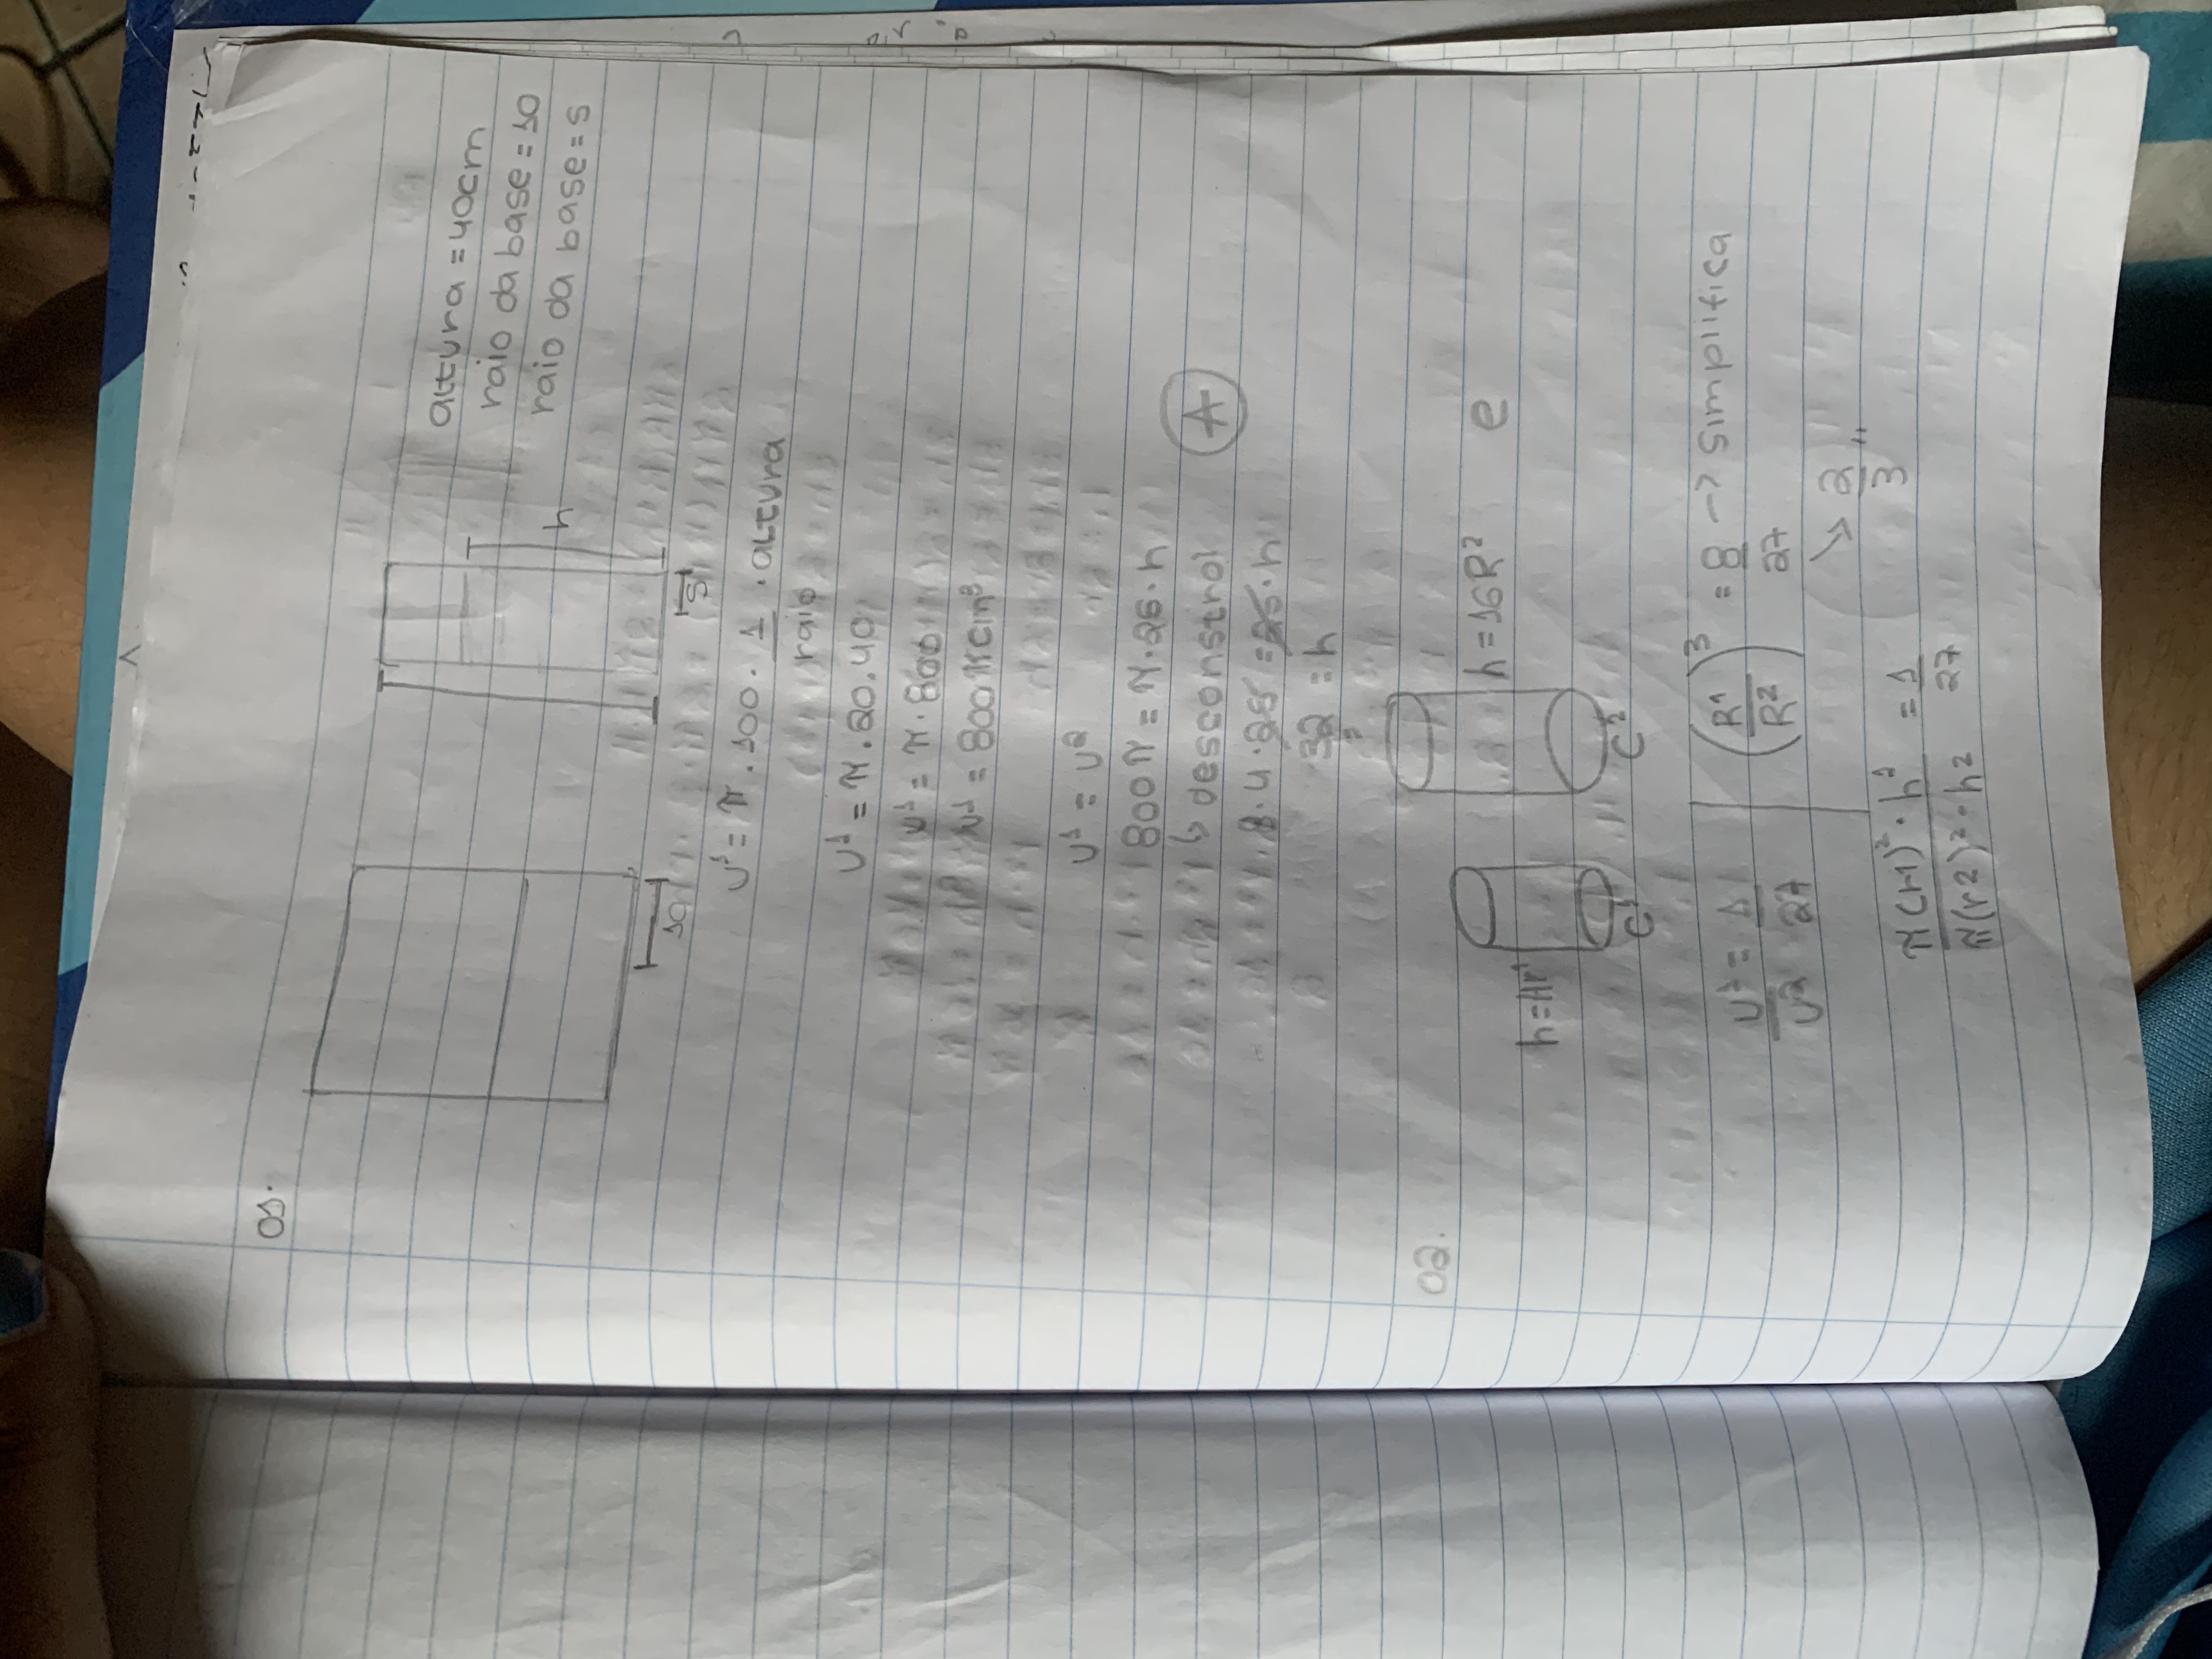 01.
altura = 40cm
raio da base = 10
raio da base = 5
h
10
5
U¹ = π . 100 . 1/raio . altura
U¹ = π . 20 . 40
U¹ = π . 800
U¹ = 800π cm³
U¹ = U²
800π = π . 25 . h
↳ desconstroi
A
8 . 4 . 25 = 25 . h
32 = h
02.
h = 16R²
e
h = 4r¹
C¹
C²
U¹/U² = 1/27
(R¹/R²)³ = 8/27 -> Simplifica
↘ 2/3 "
π(r1)² . h¹ / π(r2)² . h2 = 1/27